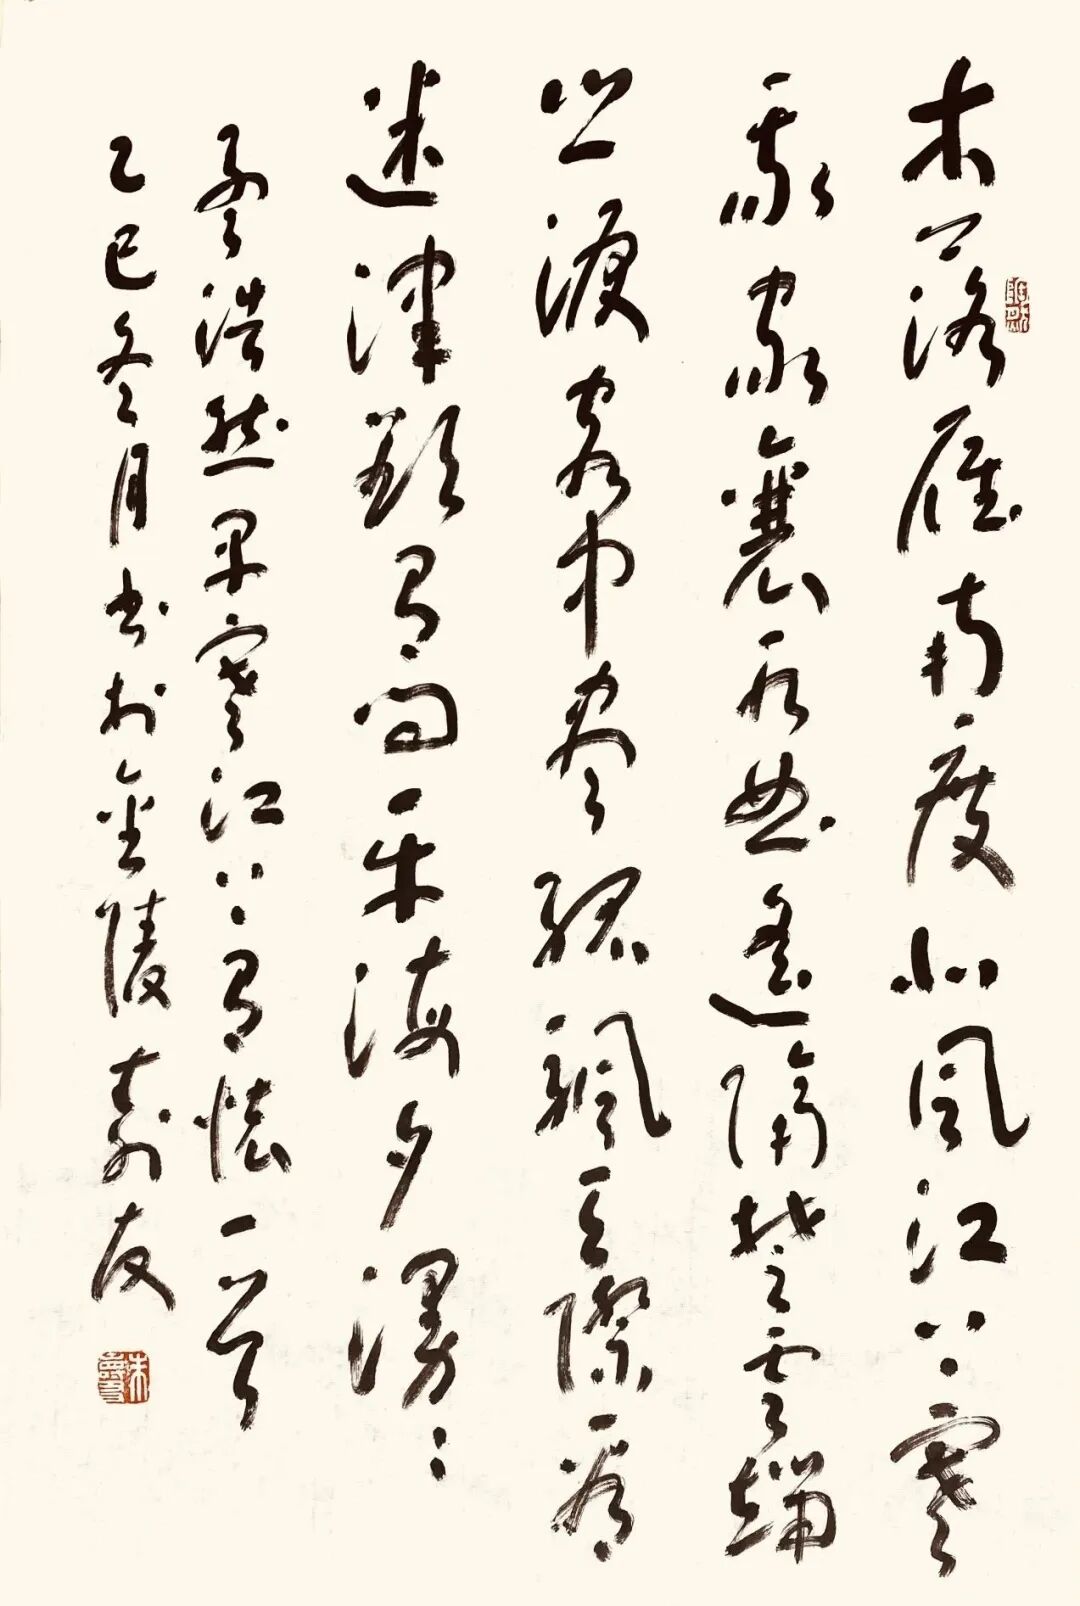 木落雁南度北風江上寒
我家襄水曲遙隔楚雲端
鄉淚客中盡孤帆天際看
迷津欲有問平海夕漫〻
孟浩然早寒江上有懷一首
乙巳冬月書於金陵壽友
朱壽友